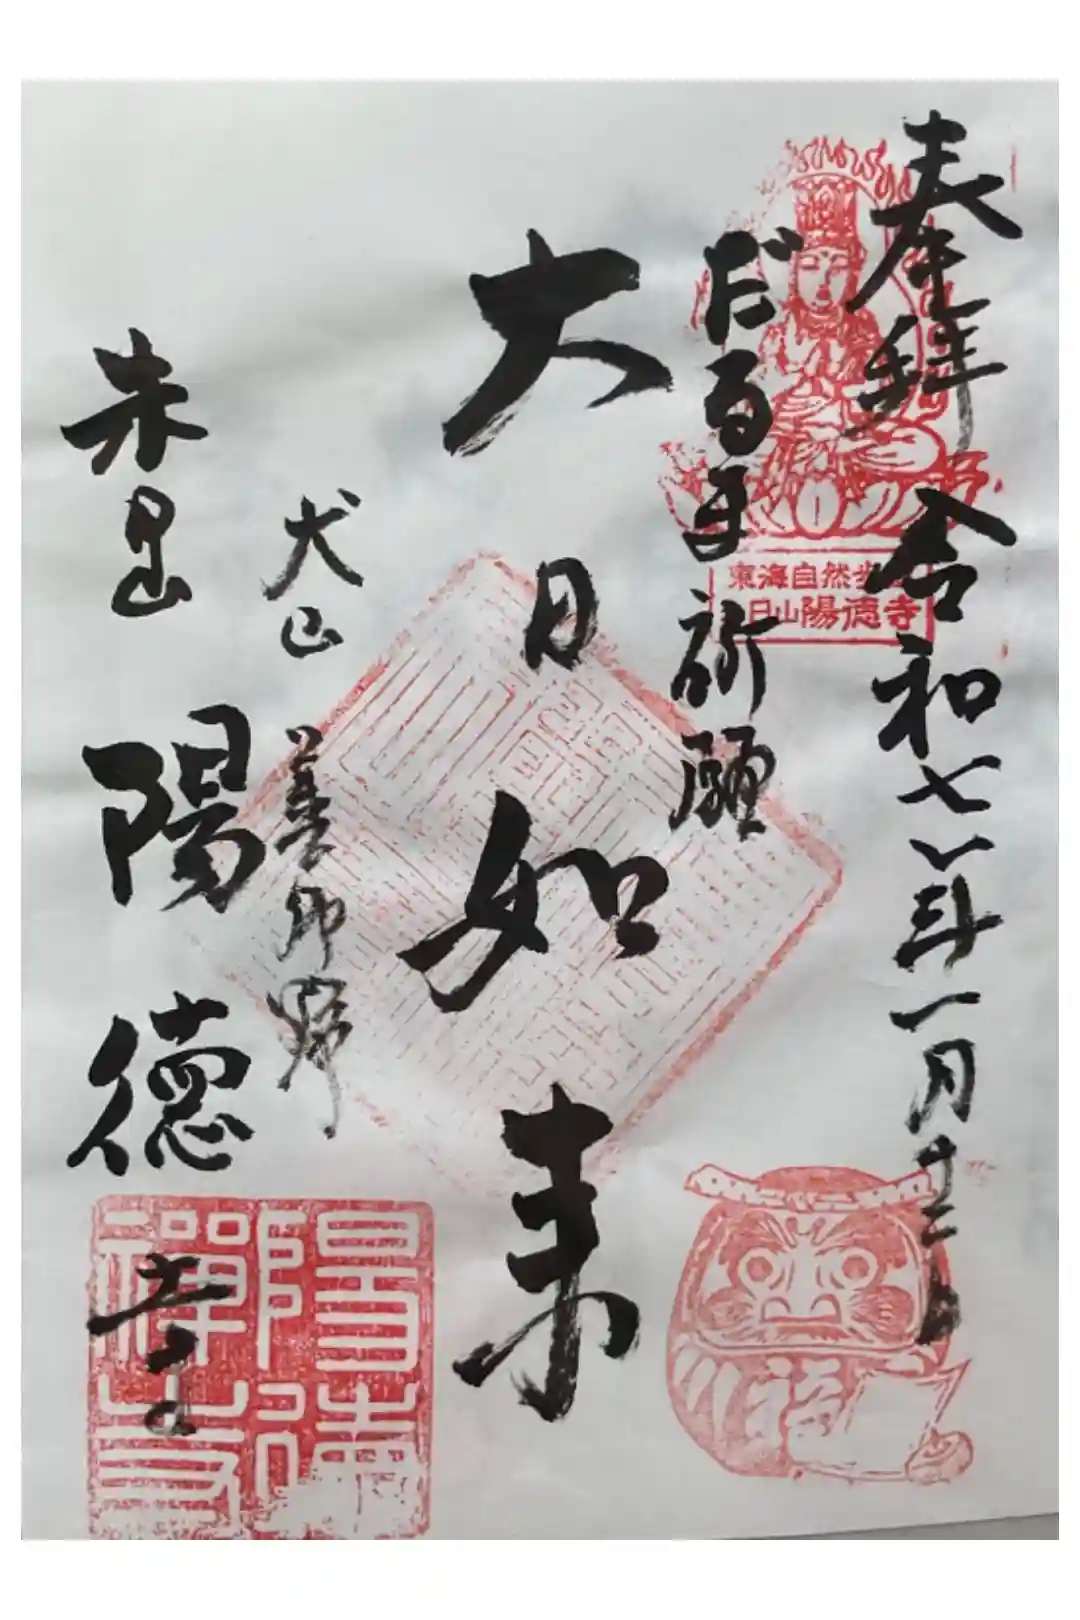 奉拝 令和七年一月十三日
だるま祈願
東海自然歩
日山陽徳寺
大日如来
犬山 善師野
朱岩山 陽徳寺
福